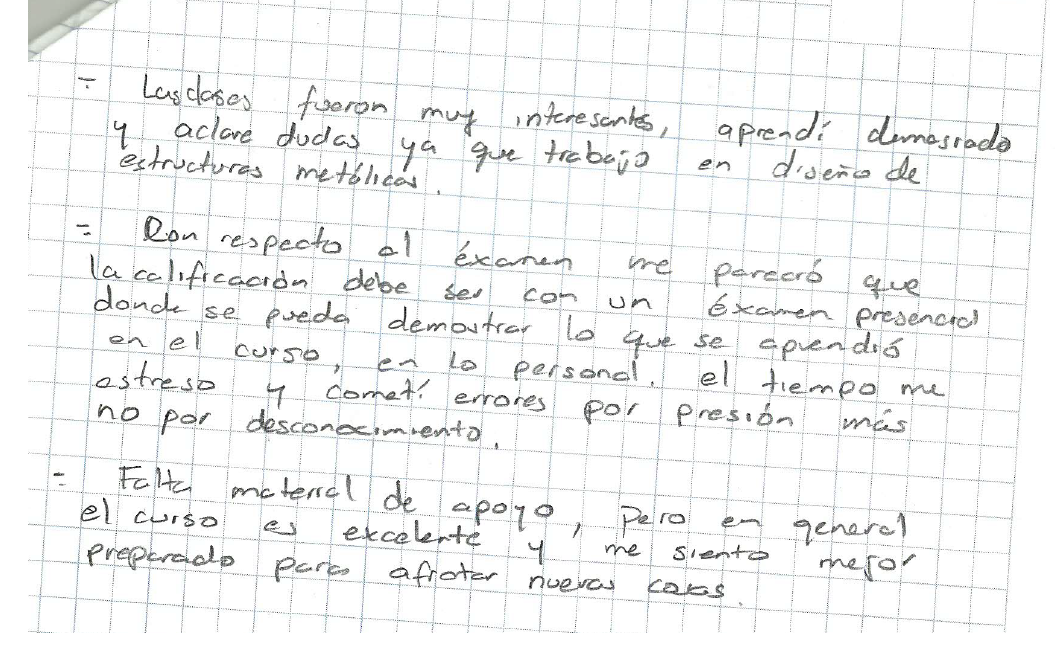 - Las clases fueron muy interesantes, aprendí demasiado
y aclare dudas ya que trabajo en diseño de
estructuras metálicas.
- Con respecto al éxamen me pareció que
la calificación debe ser con un éxamen presencial
donde se pueda demostrar lo que se aprendió
en el curso, en lo personal, el tiempo me
estreso y cometí errores por presión más
no por desconocimiento.
- Falta material de apoyo, pero en general
el curso es excelente y me siento mejor
preparado para afrotar nuevas cosas.